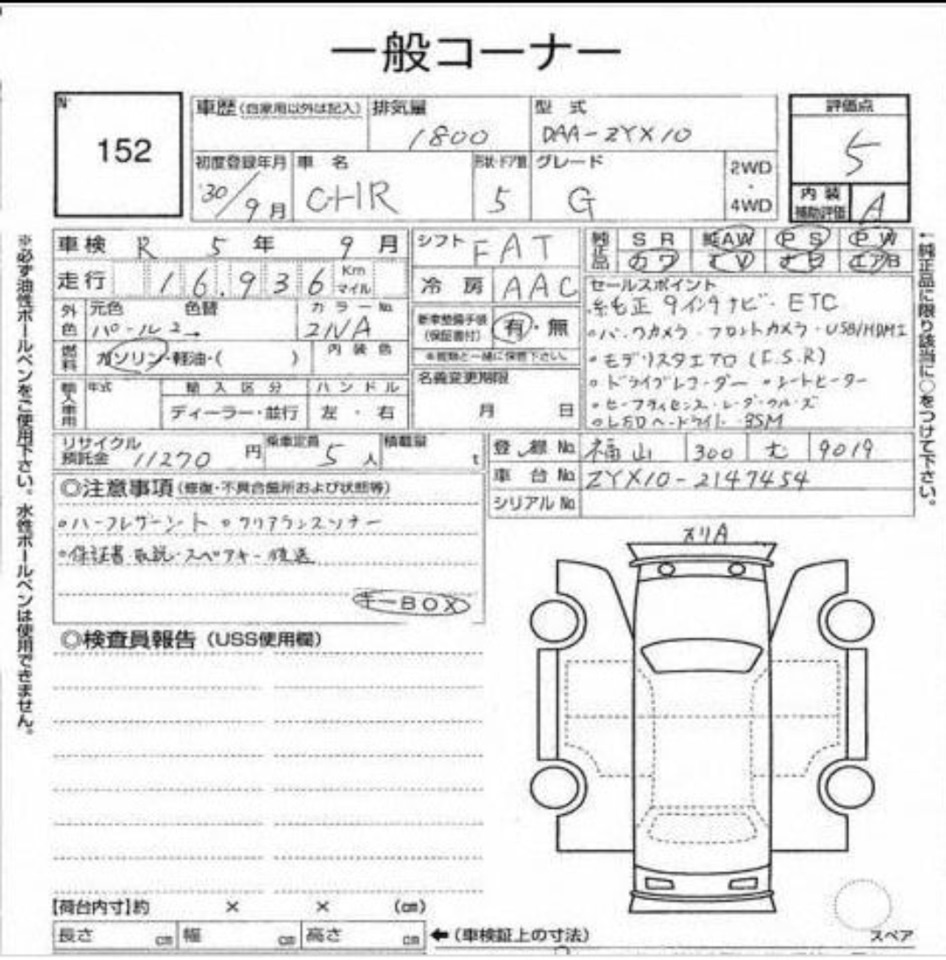 一般コーナー
N゜
152
車歴(自家用以外は記入)
排気量
1800
型 式
DAA-ZYX10
評価点
5
初度登録年月
'30/9月
車 名
CHR
形状・ドア数
5
グレード
G
2WD
・
4WD
内装
補助評価
A
車検 R 5 年 9 月
シフト FAT
純正品
SR 純AW PS PW
カワ TV ナビ エアB
走行 16.936 Km マイル
冷 房 AAC
外色
元色 色替 カラーNo.
パール2 → 2NA
新車整備手帳
(保証書付)
有・無
※書類と一緒に保管下さい。
燃料
ガソリン・軽油・( )
内 装 色
セールスポイント
純正9インチナビ・ETC
・バックカメラ・フロントカメラ・USB/HDMI
・モデリスタエアロ(F.S.R)
・ドライブレコーダー ・シートヒーター
・セーフティセンス・レーダークルーズ
・LEDヘッドライト BSM
輸入車用
年式
輸入区分
ディーラー・並行
ハンドル
左 ・ 右
名義変更期限
月 日
リサイクル
預託金
11270 円
乗車定員
5 人
積載量
t
登 録 No. 福山 300 む 9019
車 台 No. ZYX10-2147454
シリアル No.
◎注意事項(修復・不具合箇所および状態等)
・ハーフレザーシート ・クリアランスソナー
・保証書 取説・スペアキー 後送
キーBOX
スリA
◎検査員報告(USS使用欄)
【荷台内寸】約 × × (㎝)
長さ ㎝ 幅 ㎝ 高さ ㎝
←(車検証上の寸法)
スペア
※必ず油性ボールペンをご使用下さい。水性ボールペンは使用できません。
←純正品に限り該当に○をつけて下さい。